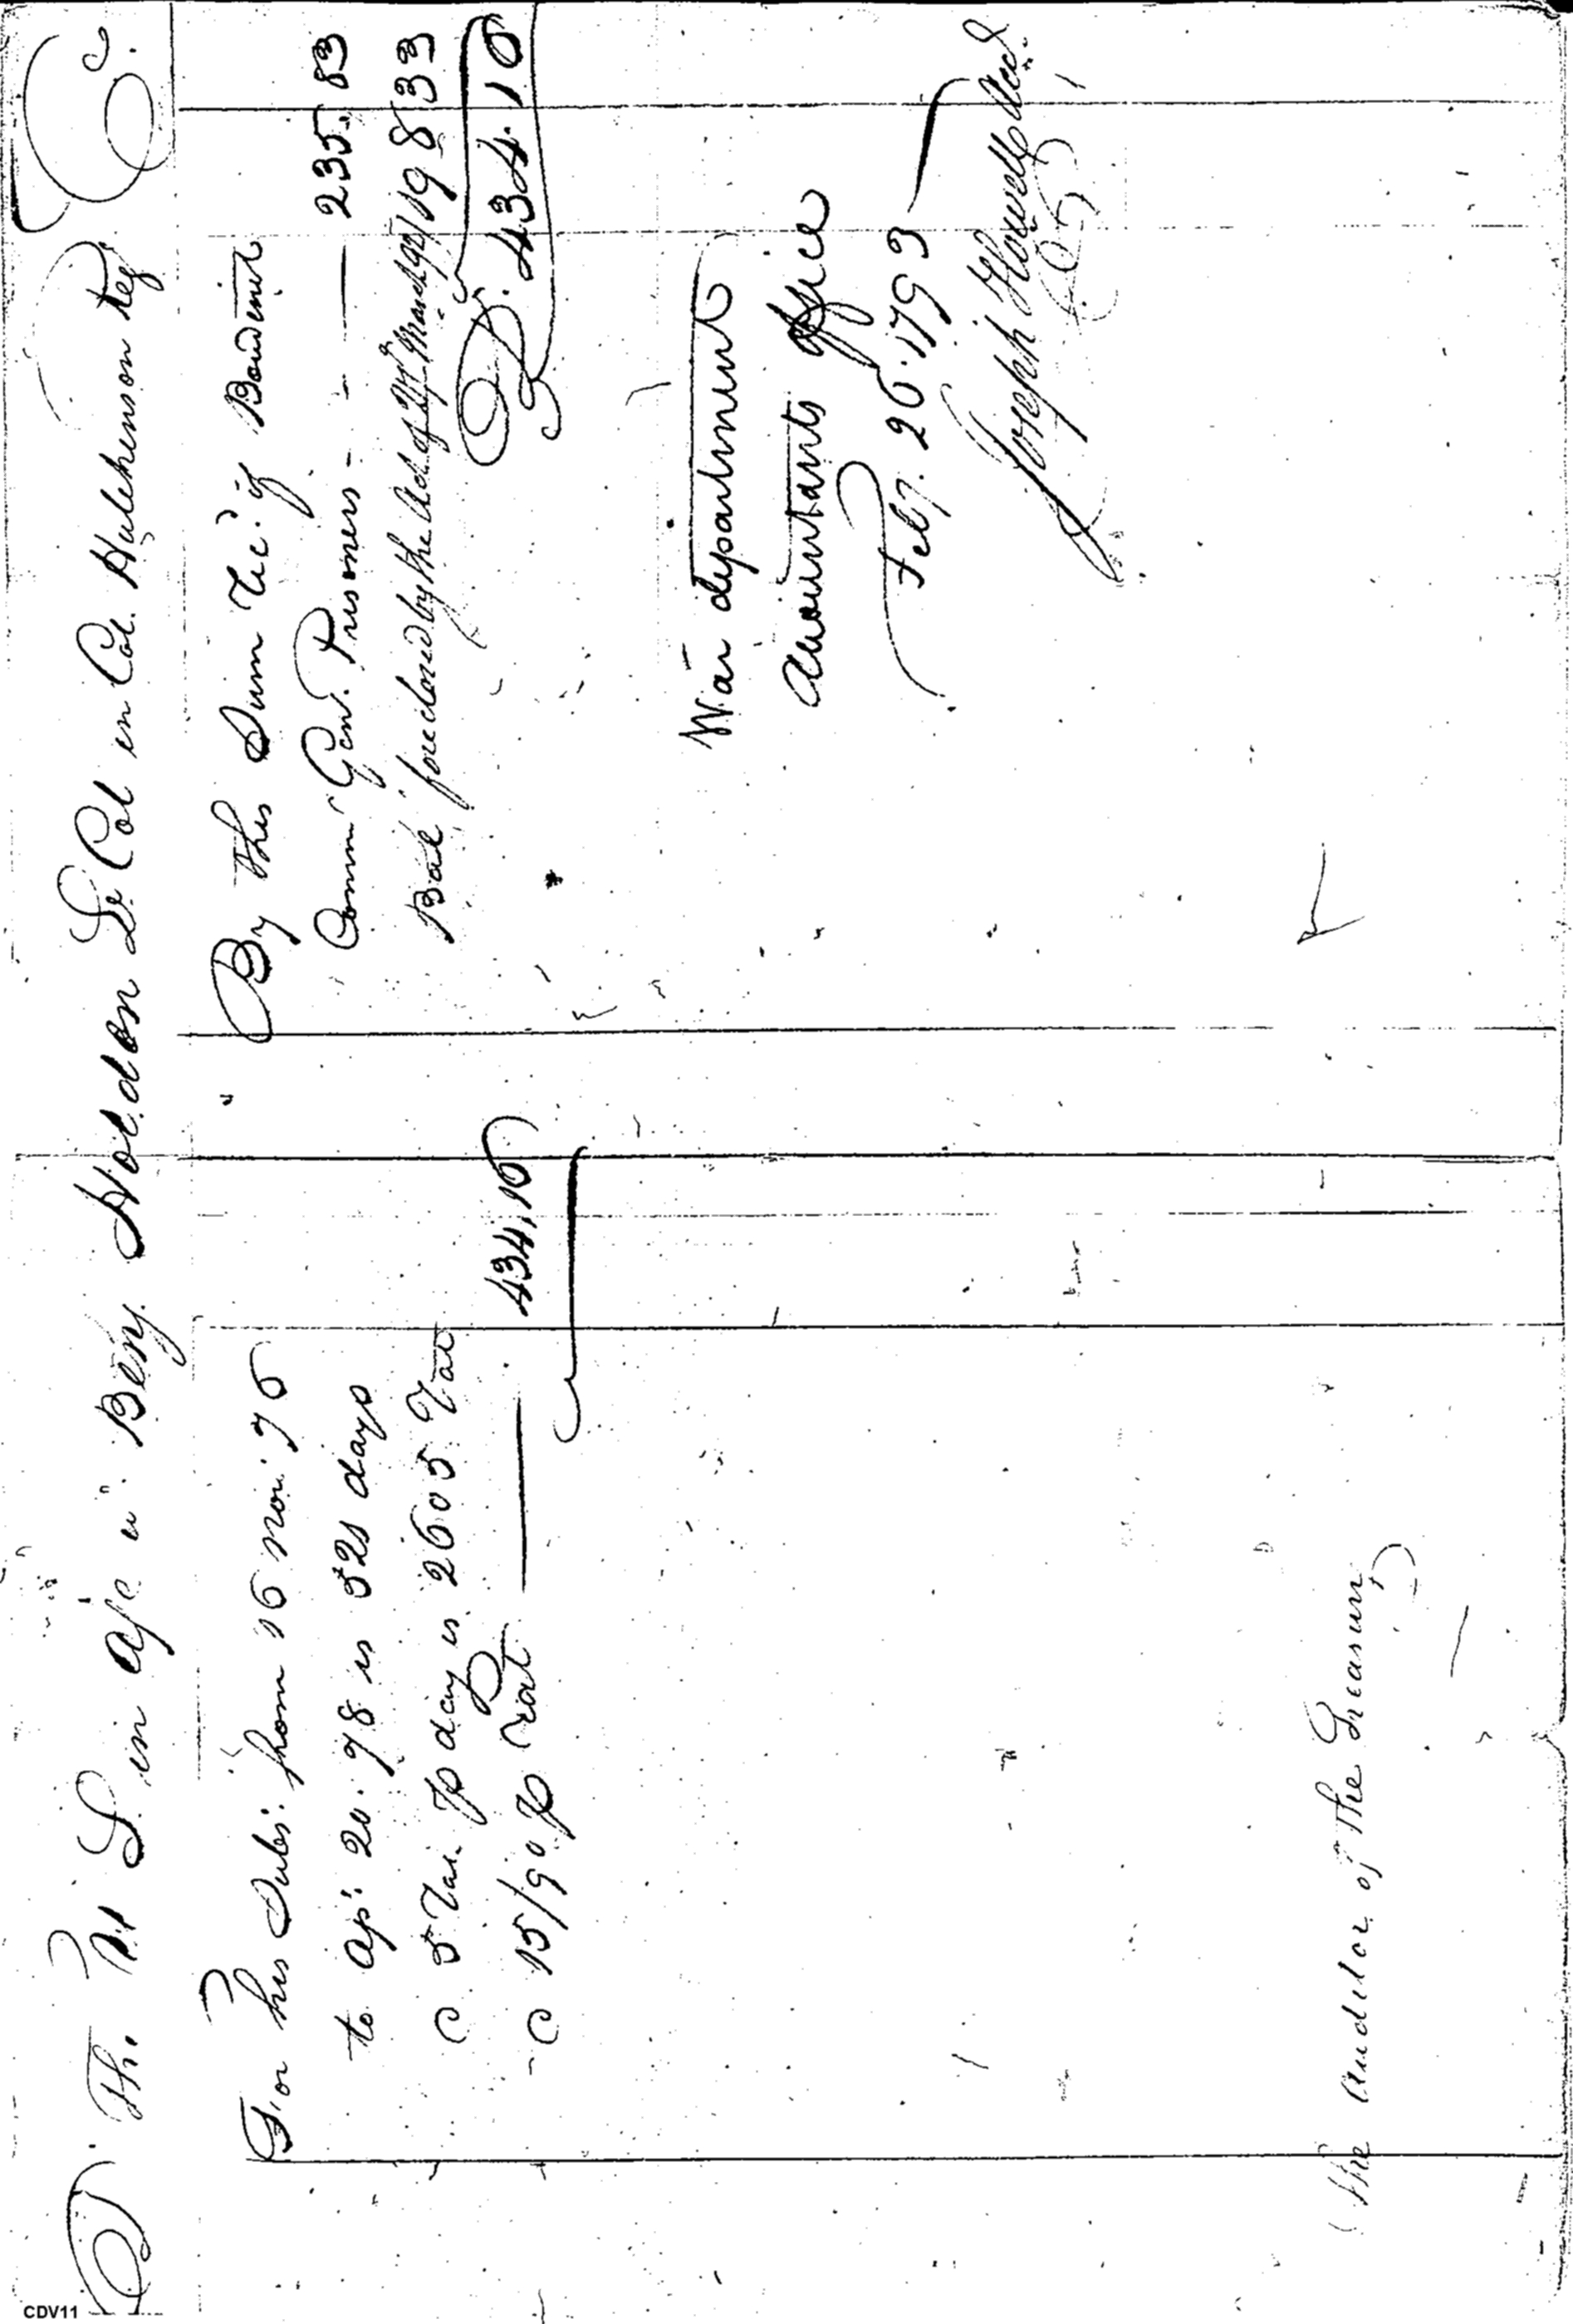 D. The U S in a/c w. Benj. Holdon Lt Col in Col. Hutchinson Reg Cr.
For his Subs: from 16 Nov: 76
to Ap: 20. 78 is 521 days
@ 5 Rat. ⅌ day is 2605 Rat
@ 15/90 ⅌ Rat. 434,16
By this Sum Rec. of Boudinot
Comm Gen. Prisoners - - - 235.83
Bal foreclosed by the Act of 27 March 92 198 33
D. 434.16
War department
Accountants office
Feby. 26. 1793
Joseph Howell Acct.
The Auditor of the Treasury
CDV11